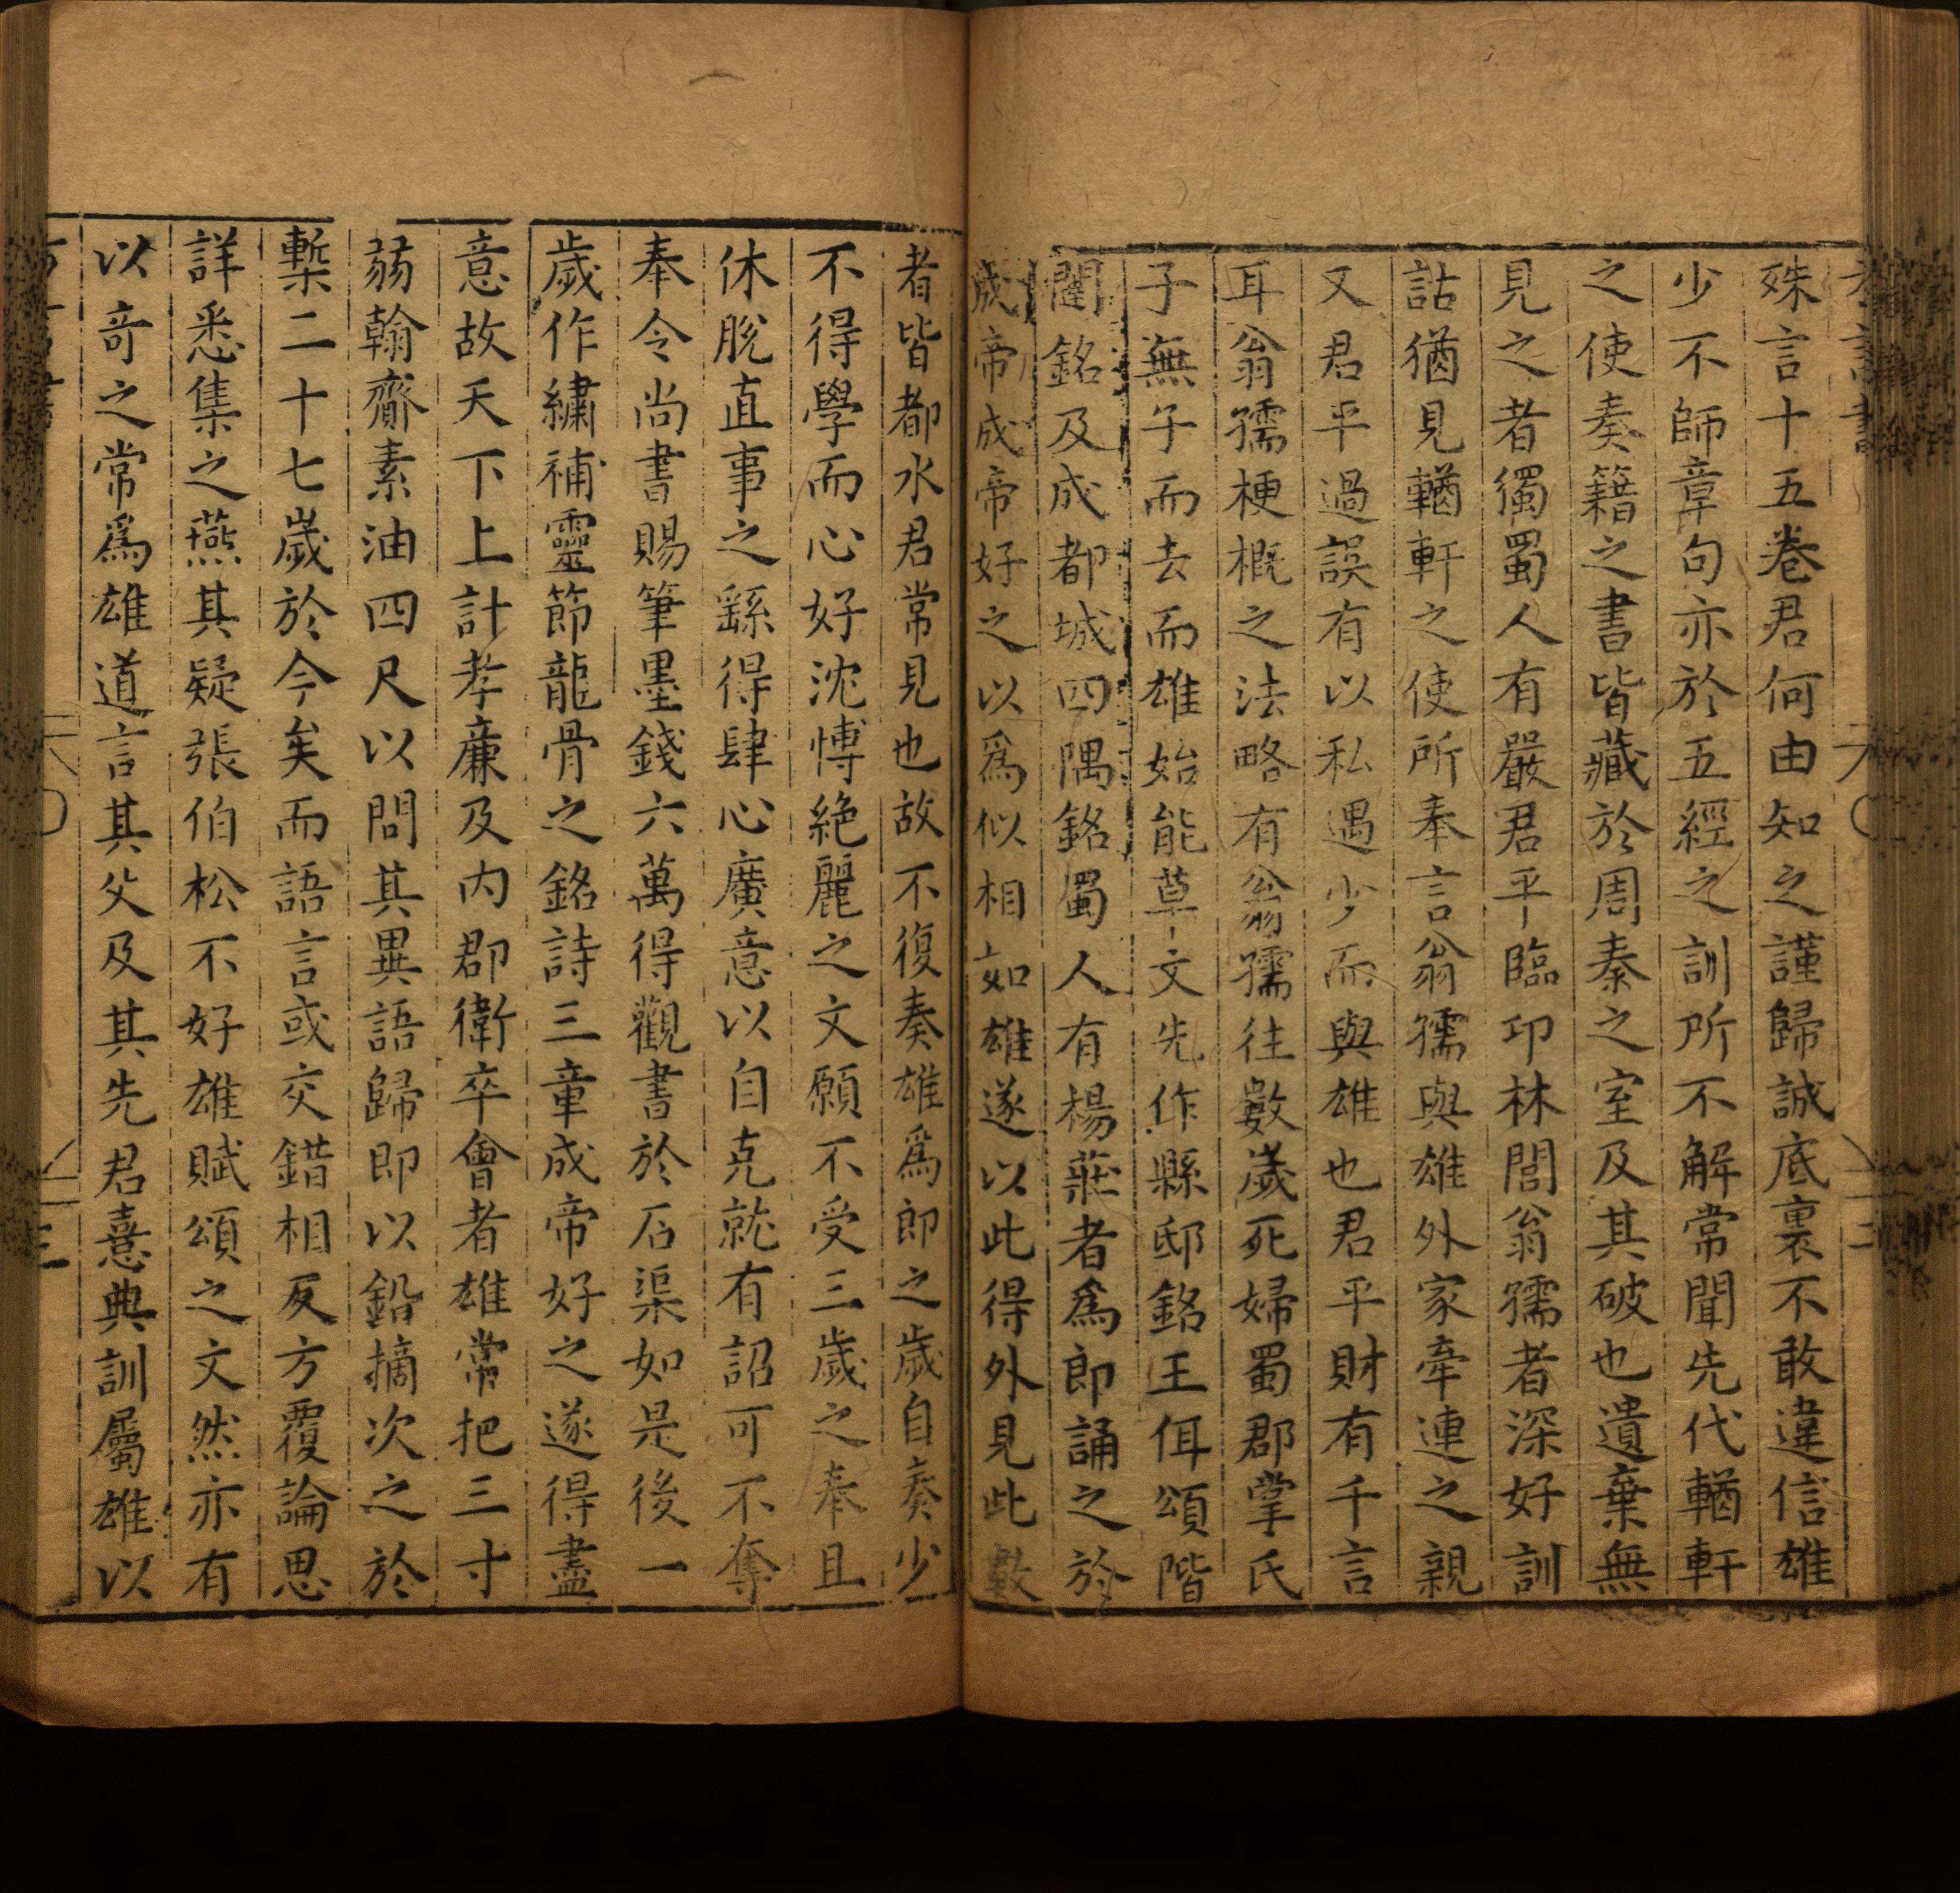 殊言十五卷君何由知之謹歸誠底裏不敢違信雄
少不師章句亦於五經之訓所不解常聞先代輶軒
之使奏籍之書皆藏於周秦之室及其破也遺棄無
見之者獨蜀人有嚴君平臨卭林閭翁孺者深好訓
詁猶見輶軒之使所奉言翁孺與雄外家牽連之親
又君平過誤有以私遇少而與雄也君平財有千言
耳翁孺梗概之法略有翁孺往數歲死婦蜀郡掌氏
子無子而去而雄始能草文先作縣邸銘王佴頌階
闥銘及成都城四隅銘蜀人有楊莊者爲郎誦之於
成帝成帝好之以爲似相如雄遂以此得外見此數
者皆都水君常見也故不復奏雄爲郎之歲自奏少
不得學而心好沈博絶麗之文願不受三歲之奉且
休脫直事之繇得肆心廣意以自克就有詔可不奪
奉令尚書賜筆墨錢六萬得觀書於石渠如是後一
歲作繡補靈節龍骨之銘詩三章成帝好之遂得盡
意故天下上計孝廉及內郡衛卒會者雄常把三寸
弱翰齎素油四尺以問其異語歸即以鉛摘次之於
槧二十七歲於今矣而語言或交錯相反方覆論思
詳悉集之燕其疑張伯松不好雄賦頌之文然亦有
以奇之常爲雄道言其父及其先君憙典訓屬雄以